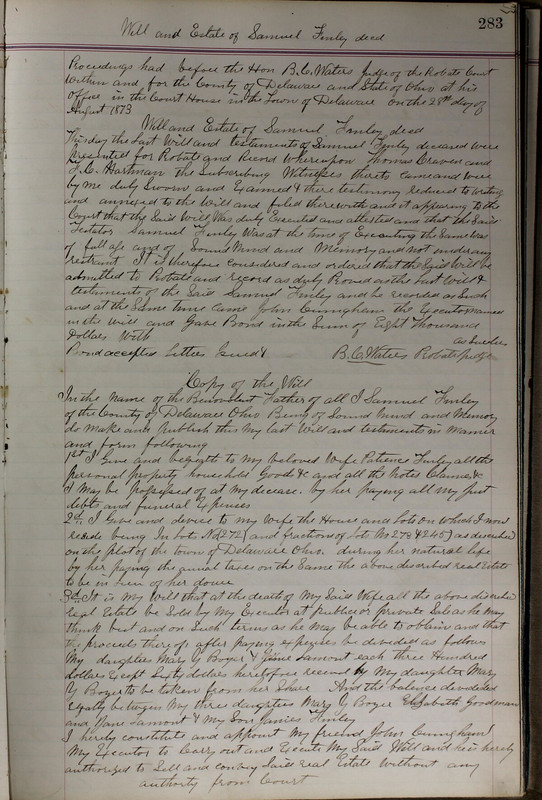 283
Will and Estate of Samuel Finley decd
Proceedings had before the Hon B.C. Waters Judge of the Probate Court
within and for the County of Delaware and State of Ohio at his
office in the Court House in the Town of Delaware on the 28th day of
August 1873
Will and Estate of Samuel Finley decd
This day the Last Will and testaments of Samuel Finley deceased were
presented for Probate and Record whereupon Thomas Craven and
F.C. Hartman the Subscribing Witnesses thereto came and were
by me duly Sworn and Examed & there testimony reduced to writing
and annexed to the Will and filed therewith and it appearing to the
Court that the Said Will Was duly Executed and attested and that the Said
Testator Samuel Finley Was at the time of Executing the Same was
of full age and of Sound Mind and Memory and not under any
restraint It is therefore Considered and ordered that the Said Will be
admitted to Probate and record as duly Proved as the Last Will &
testaments of the Said Samuel Finley and be recorded as Such
and at the Same time came John Cunningham the Executor named
in the Will and Gave Bond in the Sum of Eight Thousand
Dollars With as Sureties
Bond accepted Letters Issued & B.C. Waters Probate Judge
Copy of the Will
In the Name of the Benevolent Father of all I Samuel Finley
of the County of Delaware Ohio Being of Sound Mind and Memory
do make and Publish this My Last Will and testaments in Manner
and form following
1st I Give and bequeth to my beloved Wife Patience Finley all the
Personal property household Goods &c and all the Notes Claims &c
I May be possessed of at My decease. by her paying all my just
debts and funeral Expenses
2d. I Give and devise to my Wife the House and Lots on Which I now
reside being In Lot No 272 (and fractions of Lots No 278 & 245) as described
on the plat of the town of Delaware Ohio. during her natural life
by her paying the anual taxes on the Same the above described real Estate
to be in lieu of her dower
3d It is My Will that at the death of My Said Wife all the above discribed
real Estate be Sold by My Executor at public or private Sale as he may
think best and on Such terms as he may be able to obtain and that
the proceeds thereof after paying expenses be devided as follows
My daughters Mary Y Boyer & Jane Lamont each three Hundred
dollars Except Sixty dollars heretofore received by My daughter Mary
Y Boyer to be taken from her Share And the balance devided
Equally between My three daughters Mary Y Boyer Elizabeth Goodman
and Jane Lamont & My Son James Finley
I hereby constitute and appoint My friend John Cunningham
My Executor to Carry out and Execute My Said Will and he is hereby
authorized to Sell and convey Said real Estate without any
authority from Court